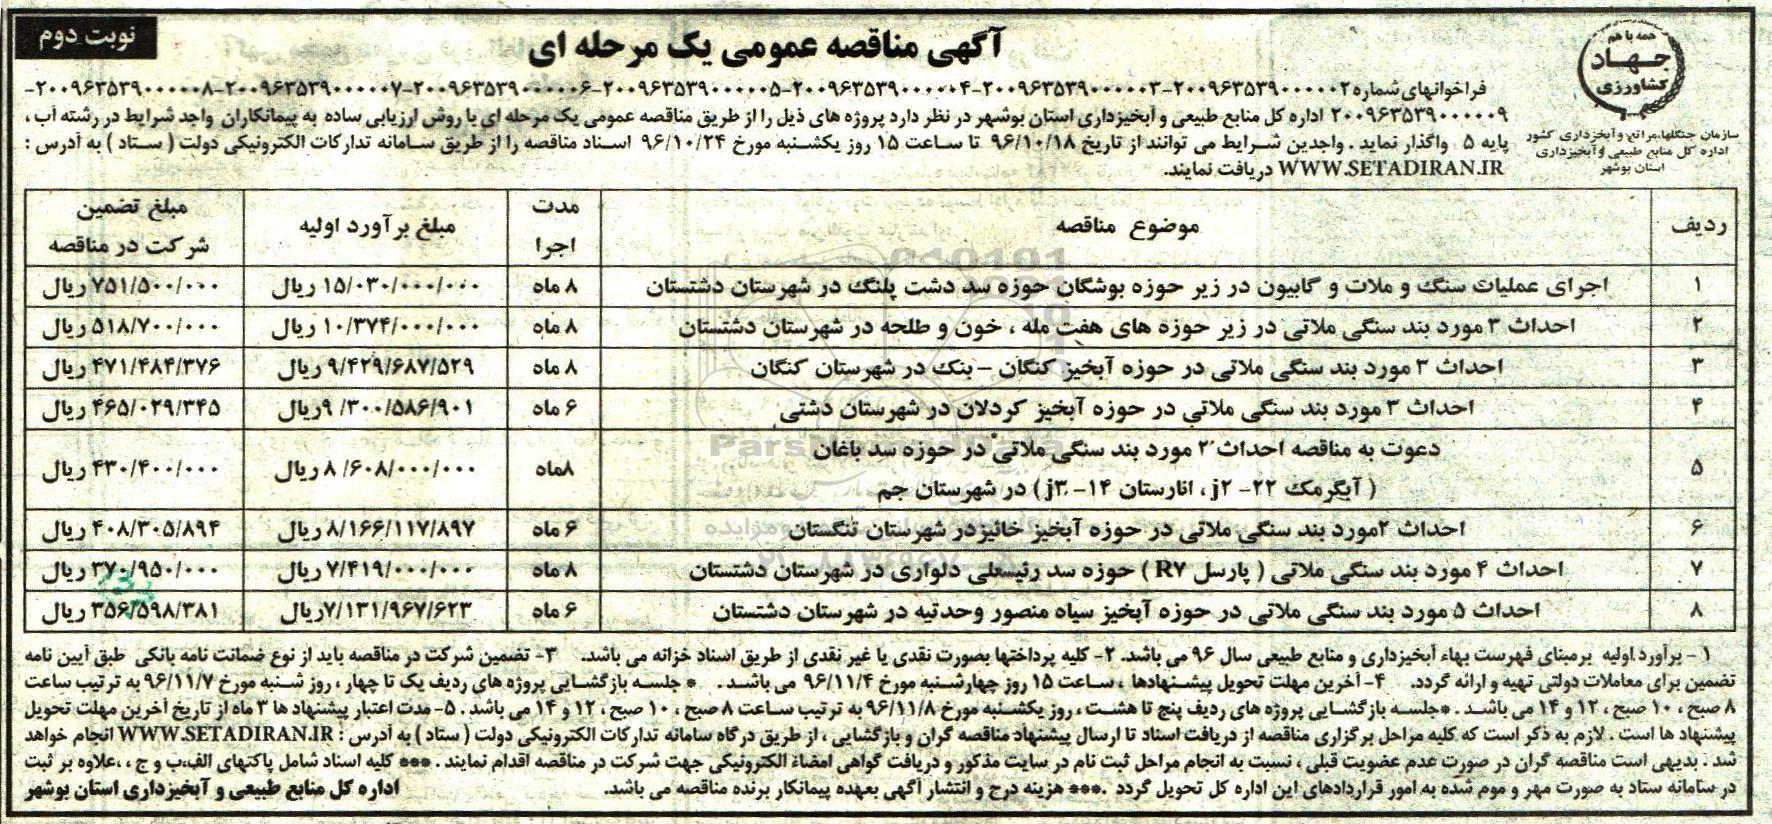 نوبت دوم
آگهی مناقصه عمومی یک مرحله ای
همه با هم
جهاد
کشاورزی
سازمان جنگلها، مراتع و آبخیزداری کشور
اداره کل منابع طبیعی و آبخیزداری
استان بوشهر
فراخوانهای شماره ۲۰۰۹۶۳۵۳۹۰۰۰۰۰۲-۲۰۰۹۶۳۵۳۹۰۰۰۰۰۳-۲۰۰۹۶۳۵۳۹۰۰۰۰۰۴-۲۰۰۹۶۳۵۳۹۰۰۰۰۰۵-۲۰۰۹۶۳۵۳۹۰۰۰۰۰۶-۲۰۰۹۶۳۵۳۹۰۰۰۰۰۷-۲۰۰۹۶۳۵۳۹۰۰۰۰۰۸-
۲۰۰۹۶۳۵۳۹۰۰۰۰۰۹ اداره کل منابع طبیعی و آبخیزداری استان بوشهر در نظر دارد پروژه های ذیل را از طریق مناقصه عمومی یک مرحله ای با روش ارزیابی ساده به پیمانکاران واجد شرایط در رشته آب ،
پایه ۵ واگذار نماید . واجدین شرایط می توانند از تاریخ ۹۶/۱۰/۱۸ تا ساعت ۱۵ روز یکشنبه مورخ ۹۶/۱۰/۲۴ اسناد مناقصه را از طریق سامانه تدارکات الکترونیکی دولت ( ستاد ) به آدرس :
WWW.SETADIRAN.IR دریافت نمایند.
ردیف موضوع مناقصه مدت اجرا مبلغ برآورد اولیه مبلغ تضمین شرکت در مناقصه
۱ اجرای عملیات سنگ و ملات و گابیون در زیر حوزه بوشگان حوزه سد دشت پلنگ در شهرستان دشتستان ۸ ماه ۱۵/۰۳۰/۰۰۰/۰۰۰ ریال ۷۵۱/۵۰۰/۰۰۰ ریال
۲ احداث ۳ مورد بند سنگی ملاتی در زیر حوزه های هفت مله ، خون و طلحه در شهرستان دشتستان ۸ ماه ۱۰/۳۷۴/۰۰۰/۰۰۰ ریال ۵۱۸/۷۰۰/۰۰۰ ریال
۳ احداث ۳ مورد بند سنگی ملاتی در حوزه آبخیز کنگان – بنک در شهرستان کنگان ۸ ماه ۹/۴۲۹/۶۸۷/۵۲۹ ریال ۴۷۱/۴۸۴/۳۷۶ ریال
۴ احداث ۳ مورد بند سنگی ملاتی در حوزه آبخیز کردلان در شهرستان دشتی ۶ ماه ۹/۳۰۰/۵۸۶/۹۰۱ ریال ۴۶۵/۰۲۹/۳۴۵ ریال
۵ دعوت به مناقصه احداث ۳ مورد بند سنگی ملاتی در حوزه سد باغان
( آبگرمک ۲۲- j۲ ، انارستان ۱۴- j۳ ) در شهرستان جم ۸ماه ۸/۶۰۸/۰۰۰/۰۰۰ ریال ۴۳۰/۴۰۰/۰۰۰ ریال
۶ احداث ۲مورد بند سنگی ملاتی در حوزه آبخیز خائیزدر شهرستان تنگستان ۶ ماه ۸/۱۶۶/۱۱۷/۸۹۷ریال ۴۰۸/۳۰۵/۸۹۴ ریال
۷ احداث ۴ مورد بند سنگی ملاتی ( پارسل R۷ ) حوزه سد رئیسعلی دلواری در شهرستان دشتستان ۸ ماه ۷/۴۱۹/۰۰۰/۰۰۰ ریال ۳۷۰/۹۵۰/۰۰۰ ریال
۸ احداث ۵ مورد بند سنگی ملاتی در حوزه آبخیز سیاه منصور وحدتیه در شهرستان دشتستان ۶ ماه ۷/۱۳۱/۹۶۷/۶۲۳ریال ۳۵۶/۵۹۸/۳۸۱ ریال
۱- برآورد اولیه برمبنای فهرست بهاء آبخیزداری و منابع طبیعی سال ۹۶ می باشد. ۲- کلیه پرداختها بصورت نقدی یا غیر نقدی از طریق اسناد خزانه می باشد. ۳- تضمین شرکت در مناقصه باید از نوع ضمانت نامه بانکی طبق آیین نامه
تضمین برای معاملات دولتی تهیه و ارائه گردد. ۴- آخرین مهلت تحویل پیشنهادها ، ساعت ۱۵ روز چهارشنبه مورخ ۹۶/۱۱/۴ می باشد . * جلسه بازگشایی پروژه های ردیف یک تا چهار ، روز شنبه مورخ ۹۶/۱۱/۷ به ترتیب ساعت
۸ صبح ، ۱۰ صبح ، ۱۲ و ۱۴ می باشد . *جلسه بازگشایی پروژه های ردیف پنج تا هشت ، روز یکشنبه مورخ ۹۶/۱۱/۸ به ترتیب ساعت ۸ صبح ، ۱۰ صبح ، ۱۲ و ۱۴ می باشد . ۵- مدت اعتبار پیشنهاد ها ۳ ماه از تاریخ آخرین مهلت تحویل
پیشنهاد ها است . لازم به ذکر است که کلیه مراحل برگزاری مناقصه از دریافت اسناد تا ارسال پیشنهاد مناقصه گران و بازگشایی ، از طریق درگاه سامانه تدارکات الکترونیکی دولت ( ستاد ) به آدرس : WWW.SETADIRAN.IR انجام خواهد
شد . بدیهی است مناقصه گران در صورت عدم عضویت قبلی ، نسبت به انجام مراحل ثبت نام در سایت مذکور و دریافت گواهی امضاء الکترونیکی جهت شرکت در مناقصه اقدام نمایند . *** کلیه اسناد شامل پاکتهای الف،ب و ج ، ،علاوه بر ثبت
در سامانه ستاد به صورت مهر و موم شده به امور قراردادهای این اداره کل تحویل گردد .*** هزینه درج و انتشار آگهی بعهده پیمانکار برنده مناقصه می باشد.
اداره کل منابع طبیعی و آبخیزداری استان بوشهر